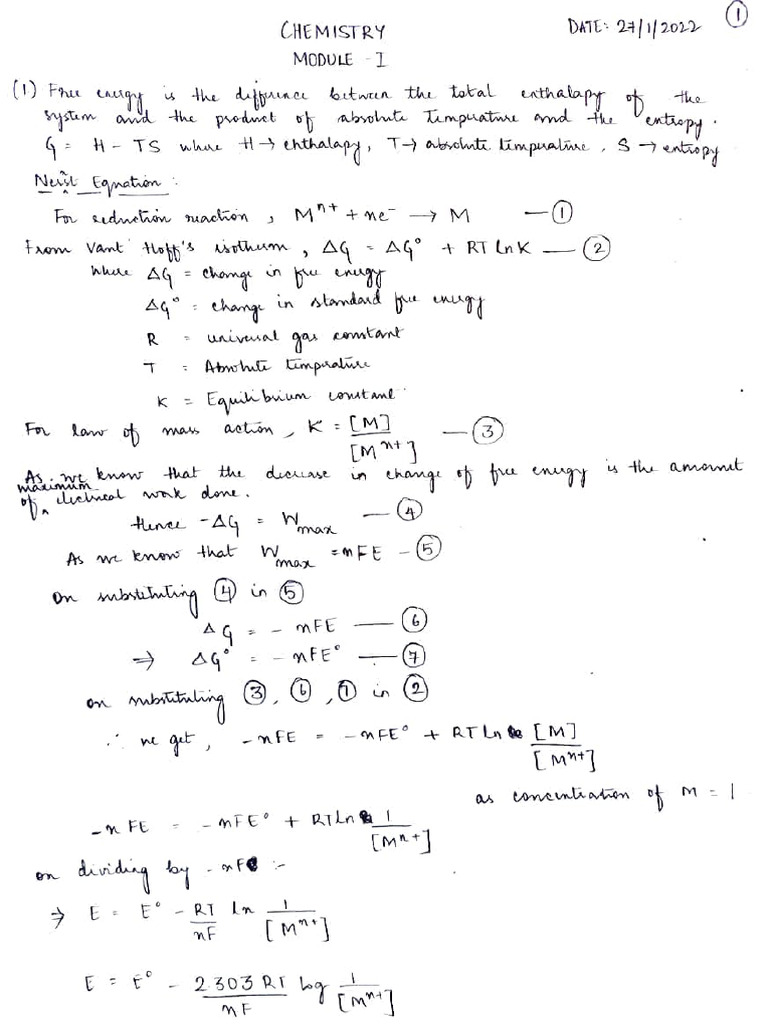 ①
CHEMISTRY DATE: 27/1/2022
MODULE - I
(1) Free energy is the difference between the total enthalapy of the
system and the product of absolute Temperature and the entropy.
G = H - TS where H → enthalapy, T → absolute temperature, S → entropy
Nerst Equation :
For reduction reaction, Mⁿ⁺ + ne⁻ → M — ①
From Vant' Hoff's isotherm, ΔG = ΔG° + RT ln K — ②
where ΔG = change in free energy
ΔG° = change in standard free energy
R = universal gas constant
T = Absolute temperature
K = Equilibrium constant
For law of mass action, K = [M] / [Mⁿ⁺] — ③
As we know that the decrease in change of free energy is the amount
of maximum electrical work done.
Hence -ΔG = Wmax — ④
As we know that Wmax = nFE — ⑤
On substituting ④ in ⑤
ΔG = - nFE — ⑥
⇒ ΔG° = - nFE° — ⑦
on substituting ③, ⑥, ⑦ in ②
∴ we get, - nFE = - nFE° + RT ln [M] / [Mⁿ⁺]
as concentration of M = 1
- n FE = - nFE° + RT ln 1 / [Mⁿ⁺]
on dividing by - nF :-
⇒ E = E° - RT / nF ln 1 / [Mⁿ⁺]
E = E° - 2 303 RT / nF log 1 / [Mⁿ⁺]